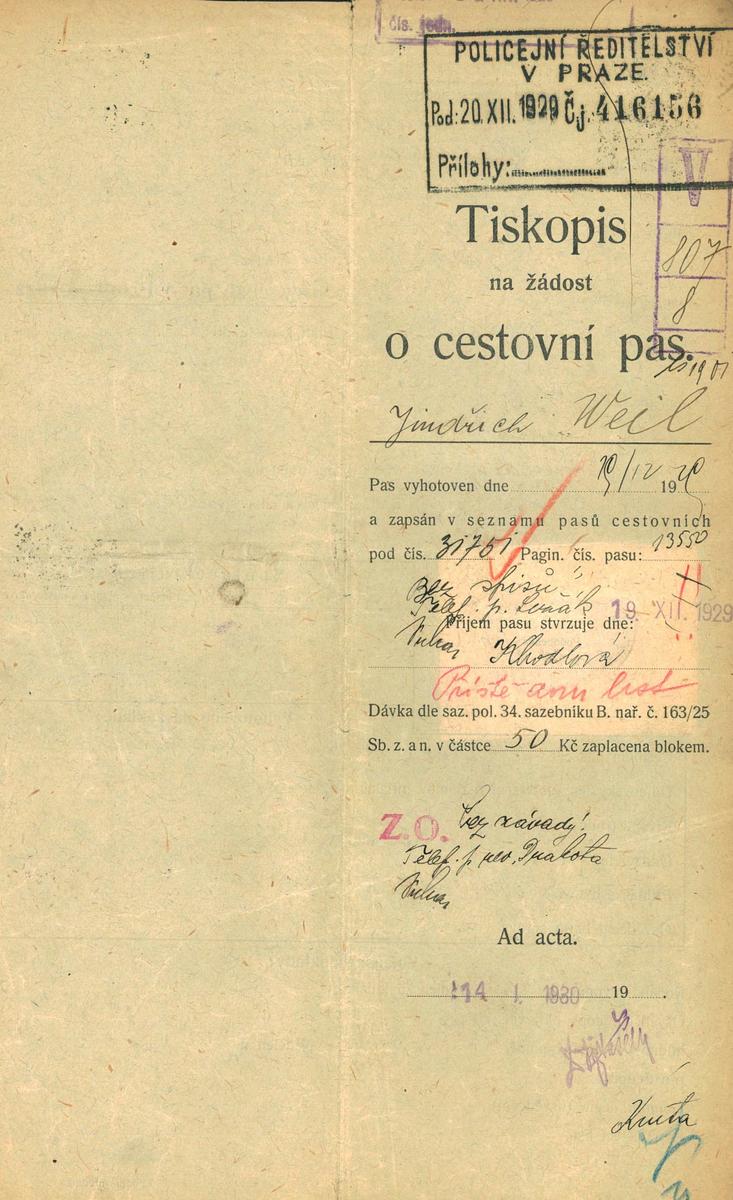 čís. jedn.
POLICEJNÍ ŘEDITELSTVÍ
V PRAZE.
Pod: 20. XII. 1929 Čj. 416156
Přílohy:
V
807
8
Tiskopis
na žádost
o cestovní pas.
Jindřich Weil
Pas vyhotoven dne 19
a zapsán v seznamu pasů cestovních
pod čís. 31751 Pagin. čís. pasu: 13550
Bez spisů!
Telef. p. 19. XII. 1929
Příjem pasu stvrzuje dne:
Khodlová
Příště dom. list
Dávka dle saz. pol. 34. sazebníku B. nař. č. 163/25
Sb. z. a n. v částce 50 Kč zaplacena blokem.
Z.O. bez závady!
Telef. p. rev. Drahota
Ad acta.
14 I. 1930 19